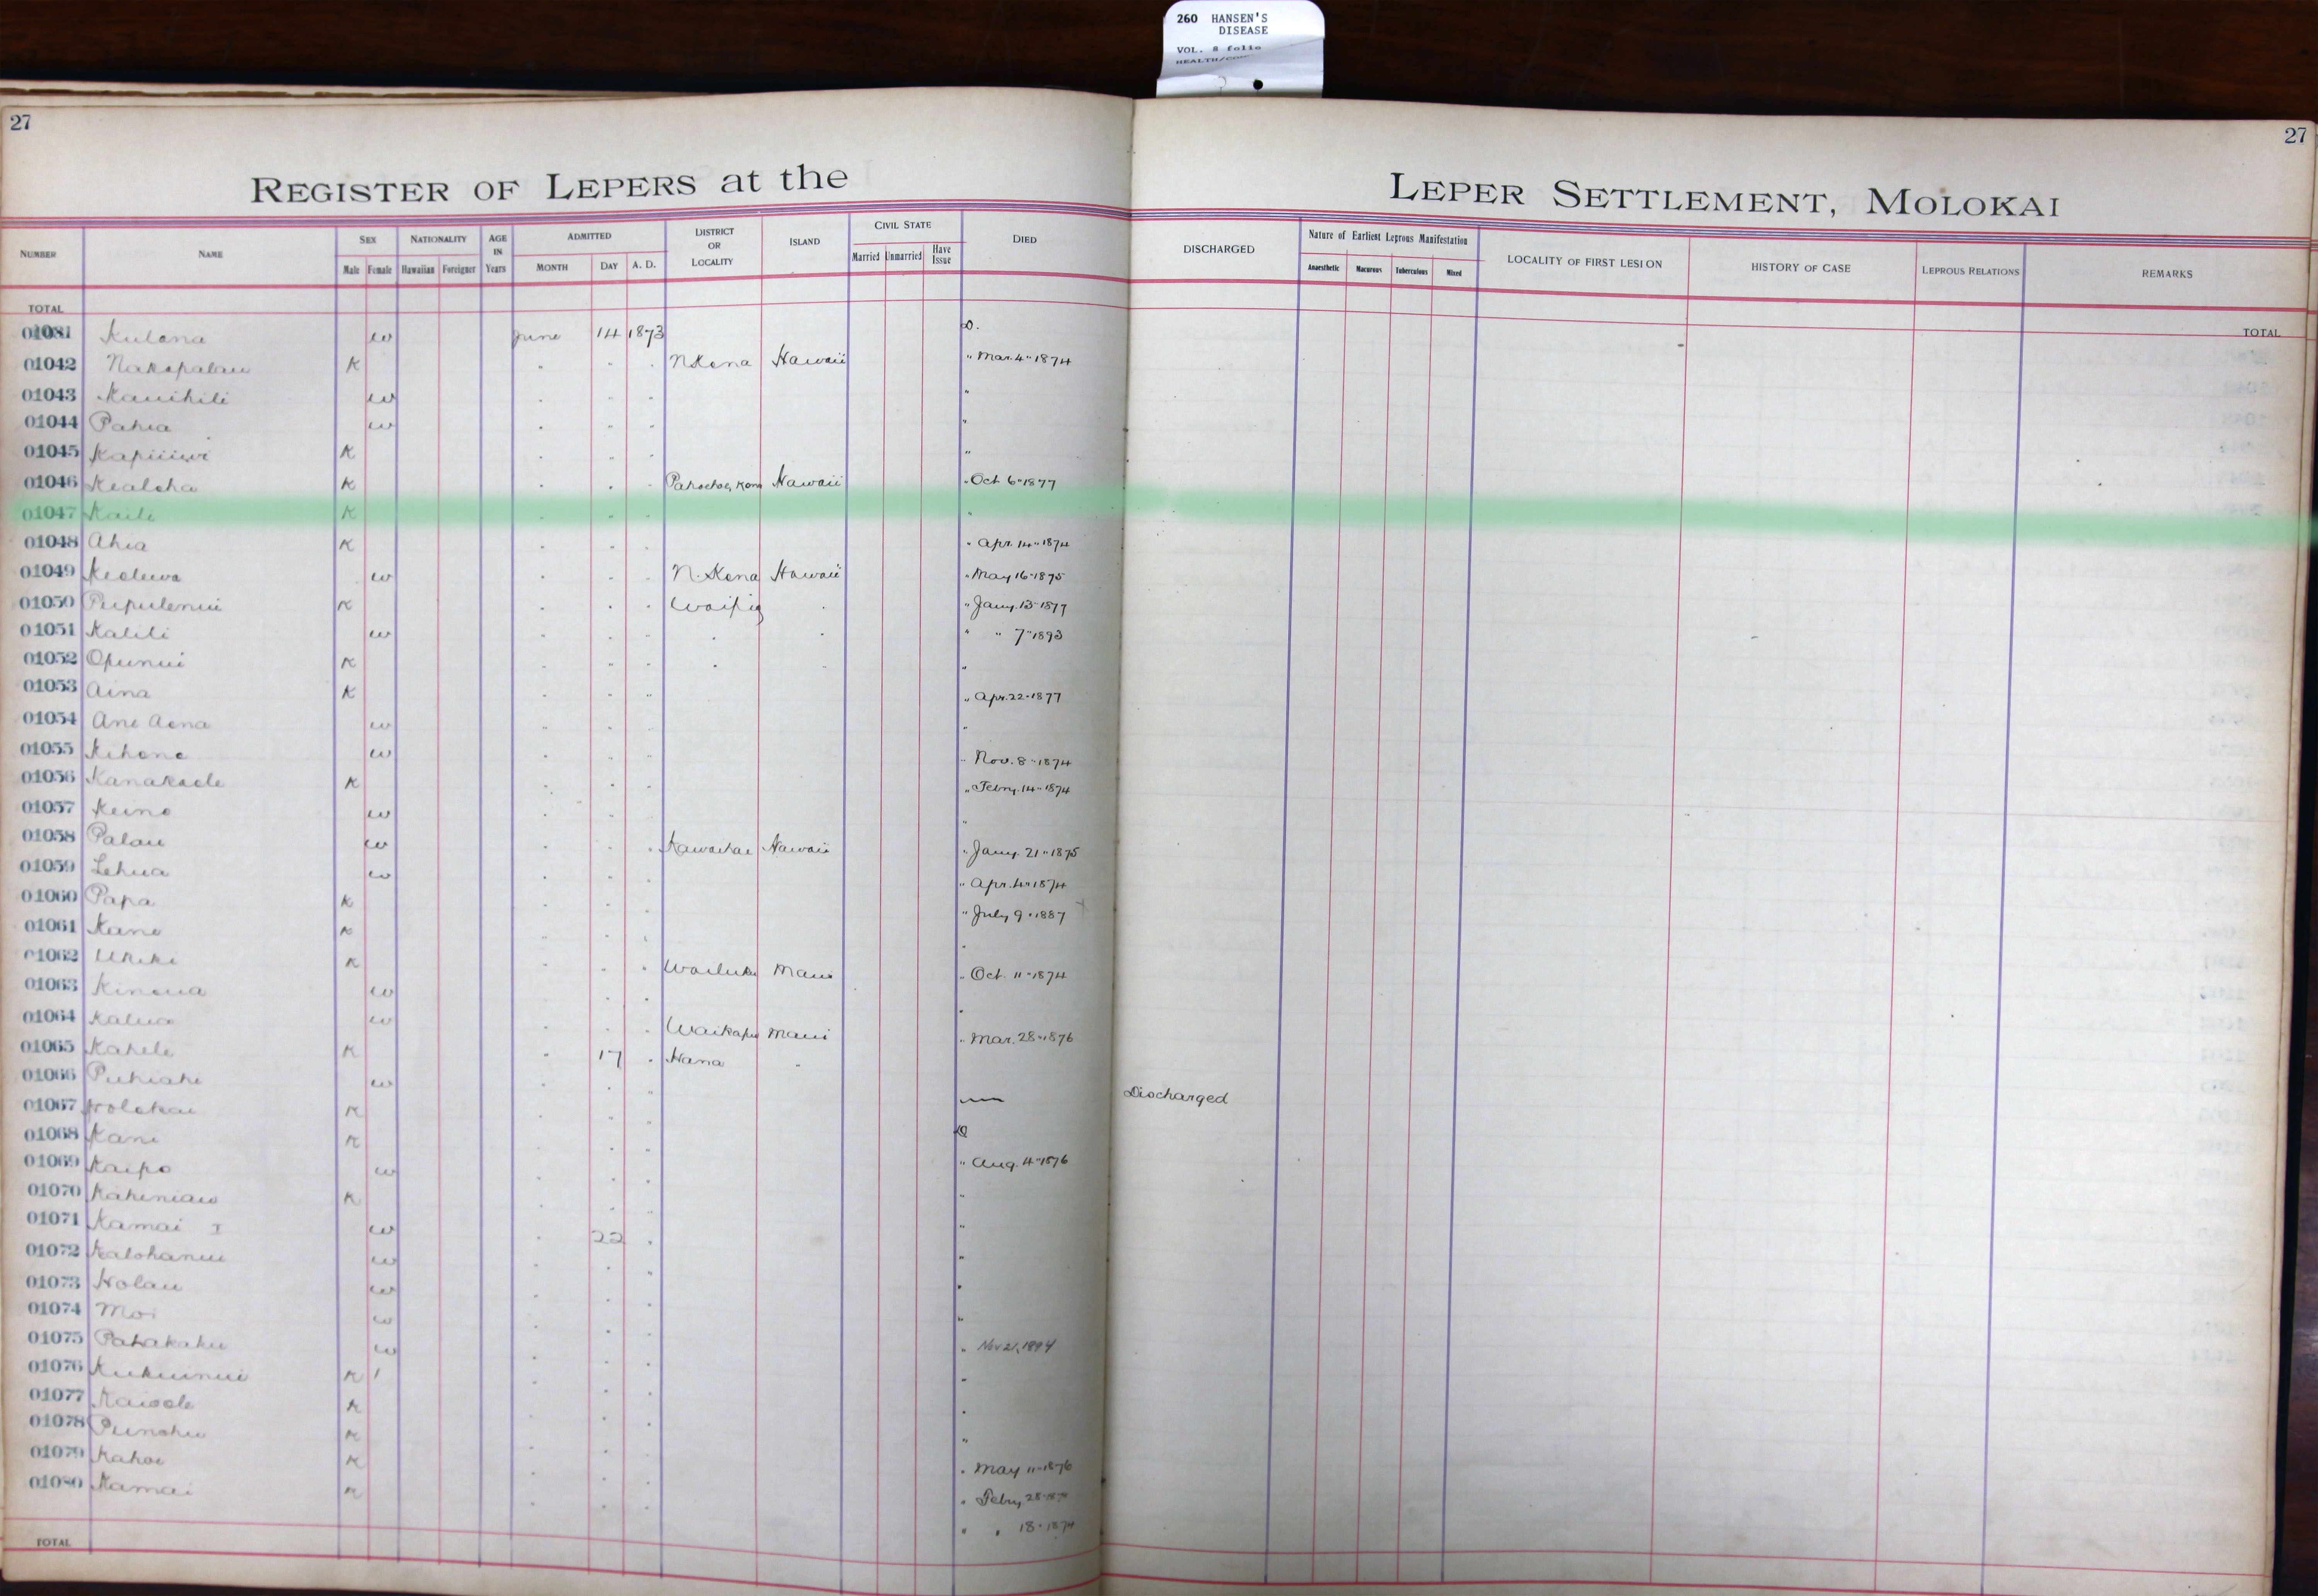 260 HANSEN'S
DISEASE
VOL. 8 folio
27
27
REGISTER OF LEPERS at the
LEPER SETTLEMENT, MOLOKAI
NUMBER NAME SEX Male Female NATIONALITY Hawaiian Foreigner AGE IN Years ADMITTED MONTH DAY A. D. DISTRICT OR LOCALITY ISLAND CIVIL STATE Married Unmarried Have Issue DIED DISCHARGED Nature of Earliest Leprous Manifestation Anaesthetic Macurous Tuberculous Mixed LOCALITY OF FIRST LESION HISTORY OF CASE LEPROUS RELATIONS REMARKS
TOTAL TOTAL
Kulana w June 14 1873 D.
01042 Nakapalau K " " " N Kona Hawaii " Mar. 4" 1874
01043 Kauihili w " " " "
01044 Pahia w " " " "
01045 K " " " "
01046 Kealoha K " " " Hawaii " Oct 6" 1877
01047 Kaili K " " " "
01048 Ahia K " " " " Apr. 14" 1874
01049 w " " " N. Kona Hawaii " May 16" 1875
01050 Pupulenui K " " " Waipio " " Jany. 13" 1877
01051 Kalili w " " " " " " " 7" 1893
01052 Opunui K " " " " " "
01053 Aina K " " " " Apr. 22" 1877
01054 Ane Aona w " " " "
01055 Kihene w " " " " Nov. 8" 1874
01056 Kanakaole K " " " " Febry. 14" 1874
01057 Keino w " " " "
01058 Palau w " " " Kawaihae Hawaii " Jany. 21" 1875
01059 Lehua w " " " " Apr. 4" 1874
01060 Papa K " " " " July 9" 1887
01061 Kane K " " " "
01062 Ukiki K " " " Wailuku Maui " Oct. 11" 1874
01063 Kinoua w " " " "
01064 Kalua w " " " Waikapu Maui " Mar. 28" 1876
01065 Kahele K " 17 " Hana "
01066 Puhiahi w " " " — Discharged
01067 Holokai K " " " D
01068 Kani K " " " " Aug. 4" 1876
01069 Kaipo w " " " "
01070 Kaheniau K " " " "
01071 Kamai I w " 22 " "
01072 Kalohanui w " " " "
01073 Holau w " " " "
01074 Moi w " " " " Nov 21, 1894
01075 Pahakaku w " " " "
01076 Kukuinui K " " " "
01077 Kaiaole K " " " "
01078 Punohu K " " " " May 11" 1876
01079 Kahoe K " " " " Febry 28"
01080 Kamai K " " " " " 18" 1874
TOTAL